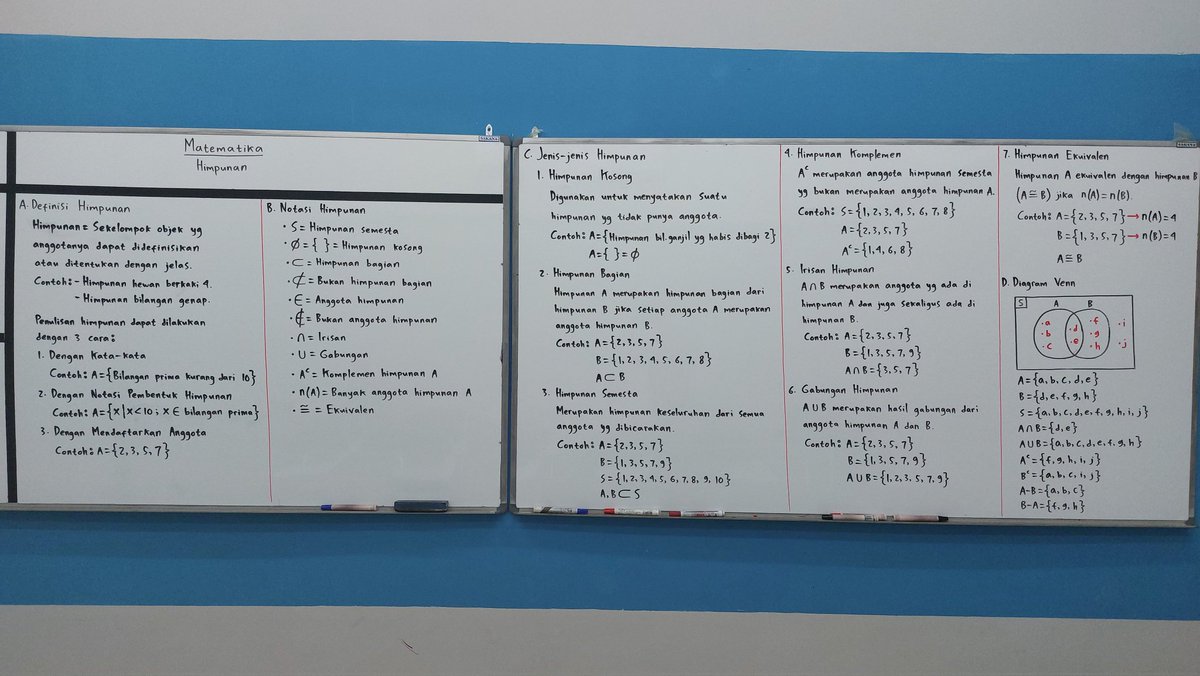 Matematika
Himpunan
A. Definisi Himpunan
Himpunan = Sekelompok objek yg
anggotanya dapat didefinisikan
atau ditentukan dengan jelas.
Contoh: - Himpunan hewan berkaki 4.
- Himpunan bilangan genap.
Penulisan himpunan dapat dilakukan
dengan 3 cara:
1. Dengan Kata-kata
Contoh: A = {Bilangan prima kurang dari 10}
2. Dengan Notasi Pembentuk Himpunan
Contoh: A = {x | x < 10; x ∈ bilangan prima}
3. Dengan Mendaftarkan Anggota
Contoh: A = {2, 3, 5, 7}
B. Notasi Himpunan
• S = Himpunan semesta
• ∅ = { } = Himpunan kosong
• ⊂ = Himpunan bagian
• ⊄ = Bukan himpunan bagian
• ∈ = Anggota himpunan
• ∉ = Bukan anggota himpunan
• ∩ = Irisan
• ∪ = Gabungan
• Aᶜ = Komplemen himpunan A
• n(A) = Banyak anggota himpunan A
• ≅ = Ekuivalen
C. Jenis-jenis Himpunan
1. Himpunan Kosong
Digunakan untuk menyatakan suatu
himpunan yg tidak punya anggota.
Contoh: A = {Himpunan bil. ganjil yg habis dibagi 2}
A = { } = ∅
2. Himpunan Bagian
Himpunan A merupakan himpunan bagian dari
himpunan B jika setiap anggota A merupakan
anggota himpunan B.
Contoh: A = {2, 3, 5, 7}
B = {1, 2, 3, 4, 5, 6, 7, 8}
A ⊂ B
3. Himpunan Semesta
Merupakan himpunan keseluruhan dari semua
anggota yg dibicarakan.
Contoh: A = {2, 3, 5, 7}
B = {1, 3, 5, 7, 9}
S = {1, 2, 3, 4, 5, 6, 7, 8, 9, 10}
A, B ⊂ S
4. Himpunan Komplemen
Aᶜ merupakan anggota himpunan semesta
yg bukan merupakan anggota himpunan A.
Contoh: S = {1, 2, 3, 4, 5, 6, 7, 8}
A = {2, 3, 5, 7}
Aᶜ = {1, 4, 6, 8}
5. Irisan Himpunan
A ∩ B merupakan anggota yg ada di
himpunan A dan juga sekaligus ada di
himpunan B.
Contoh: A = {2, 3, 5, 7}
B = {1, 3, 5, 7, 9}
A ∩ B = {3, 5, 7}
6. Gabungan Himpunan
A ∪ B merupakan hasil gabungan dari
anggota himpunan A dan B.
Contoh: A = {2, 3, 5, 7}
B = {1, 3, 5, 7, 9}
A ∪ B = {1, 2, 3, 5, 7, 9}
7. Himpunan Ekuivalen
Himpunan A ekuivalen dengan himpunan B
(A ≅ B) jika n(A) = n(B).
Contoh: A = {2, 3, 5, 7} → n(A) = 4
B = {1, 3, 5, 7} → n(B) = 4
A ≅ B
D. Diagram Venn
S A B
• a • d • f • i
• b • e • g • j
• c • h
A = {a, b, c, d, e}
B = {d, e, f, g, h}
S = {a, b, c, d, e, f, g, h, i, j}
A ∩ B = {d, e}
A ∪ B = {a, b, c, d, e, f, g, h}
Aᶜ = {f, g, h, i, j}
Bᶜ = {a, b, c, i, j}
A - B = {a, b, c}
B - A = {f, g, h}